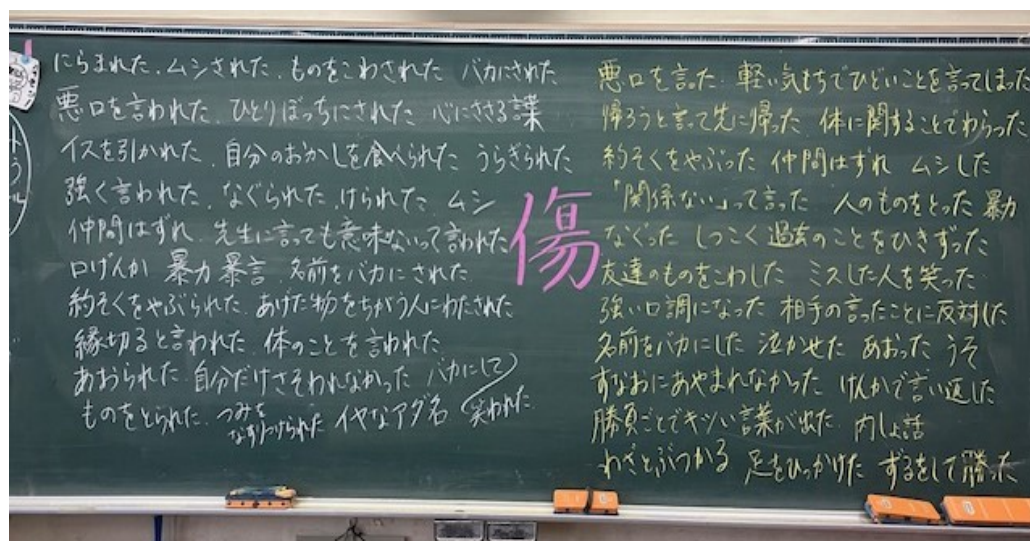 にらまれた、ムシされた、ものをこわされた バカにされた
悪口を言われた ひとりぼっちにされた 心にささる言葉
イスを引かれた、自分のおかしを食べられた うらぎられた
強く言われた、なぐられた、けられた、ムシ
仲間はずれ 先生に言っても意味ないって言われた
口げんか 暴力 暴言 名前をバカにされた
約そくをやぶられた、あげた物をちがう人にわたされた
縁切ると言われた、体のことを言われた
あおられた 自分だけさそわれなかった バカにして
ものをとられた、つみを なすりつけられた イヤなアダ名 笑われた
傷
悪口を言った 軽い気もちでひどいことを言ってしまった
帰ろうと言って先に帰った 体に関することでわらった
約そくをやぶった 仲間はずれ ムシした
「関係ない」って言った 人のものをとった 暴力
なぐった しつこく過去のことをひきずった
友達のものをこわした ミスした人を笑った
強い口調になった 相手の言ったことに反対した
名前をバカにした 泣かせた あおった うそ
すなおにあやまれなかった けんかで言い返した
勝負ごとでキツい言葉が出た 内しょ話
わざとぶつかる 足をひっかけた ずるをして勝った